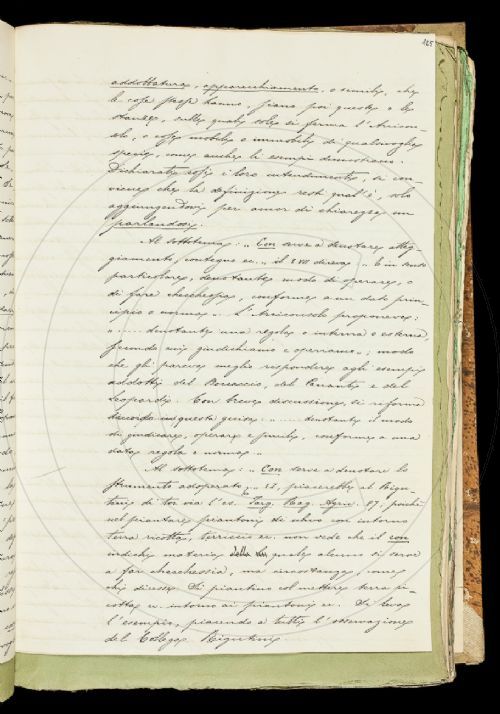 125
addottature, apparecchiamento, o simile, che
le cose stesse hanno, siano poi queste o le
stanze, sulle quali solo si ferma l'Arcicon-
solo, o cose mobili o immobili di qualsivoglia
specie, come anche li esempi dimostrano.
Dichiaratosi così il loro intendimento, si con-
viene che la definizione resti qual'è, solo
aggiungendovi per amor di chiarezza un
parlandosi.
Al sottotema: " Con serve a denotare atteg-
giamento, contegno ec. " il XVII diceva " E in senso
particolare, denotante modo di operare, o
di fare checchessia, conforme a un dato prin-
cipio o norma ". L'Arciconsolo proponeva:
" ..... denotante una regola o interna o esterna,
secondo cui giudichiamo e operiamo "; modo
che gli pareva meglio rispondere agli esempi
addotti del Boccaccio, del Pananti e del
Leopardi. Con breve discussione, si riforma
in questa guisa: " ..... denotante il modo
di giudicare, operare e simili, conforme a una
data regola o norma. "
Al sottotema: " Con serve a denotare lo
strumento adoperato " ec., piacerebbe al Rigu-
tini di tor via l'es. Targ. Rag. Agric. 97. poichè
nel piantare piantoni di ulivo con intorno
terra ricotta, terriccio ec. non vede che il con
indichi materia quale alcuno si serve
a far checchessia, ma circostanza, come
che dicesse: Si piantino col mettere terra ri-
cotta ec. intorno ai piantoni ec. Si leva
l'esempio, piacendo a tutti l'osservazione
del Collega Rigutini.